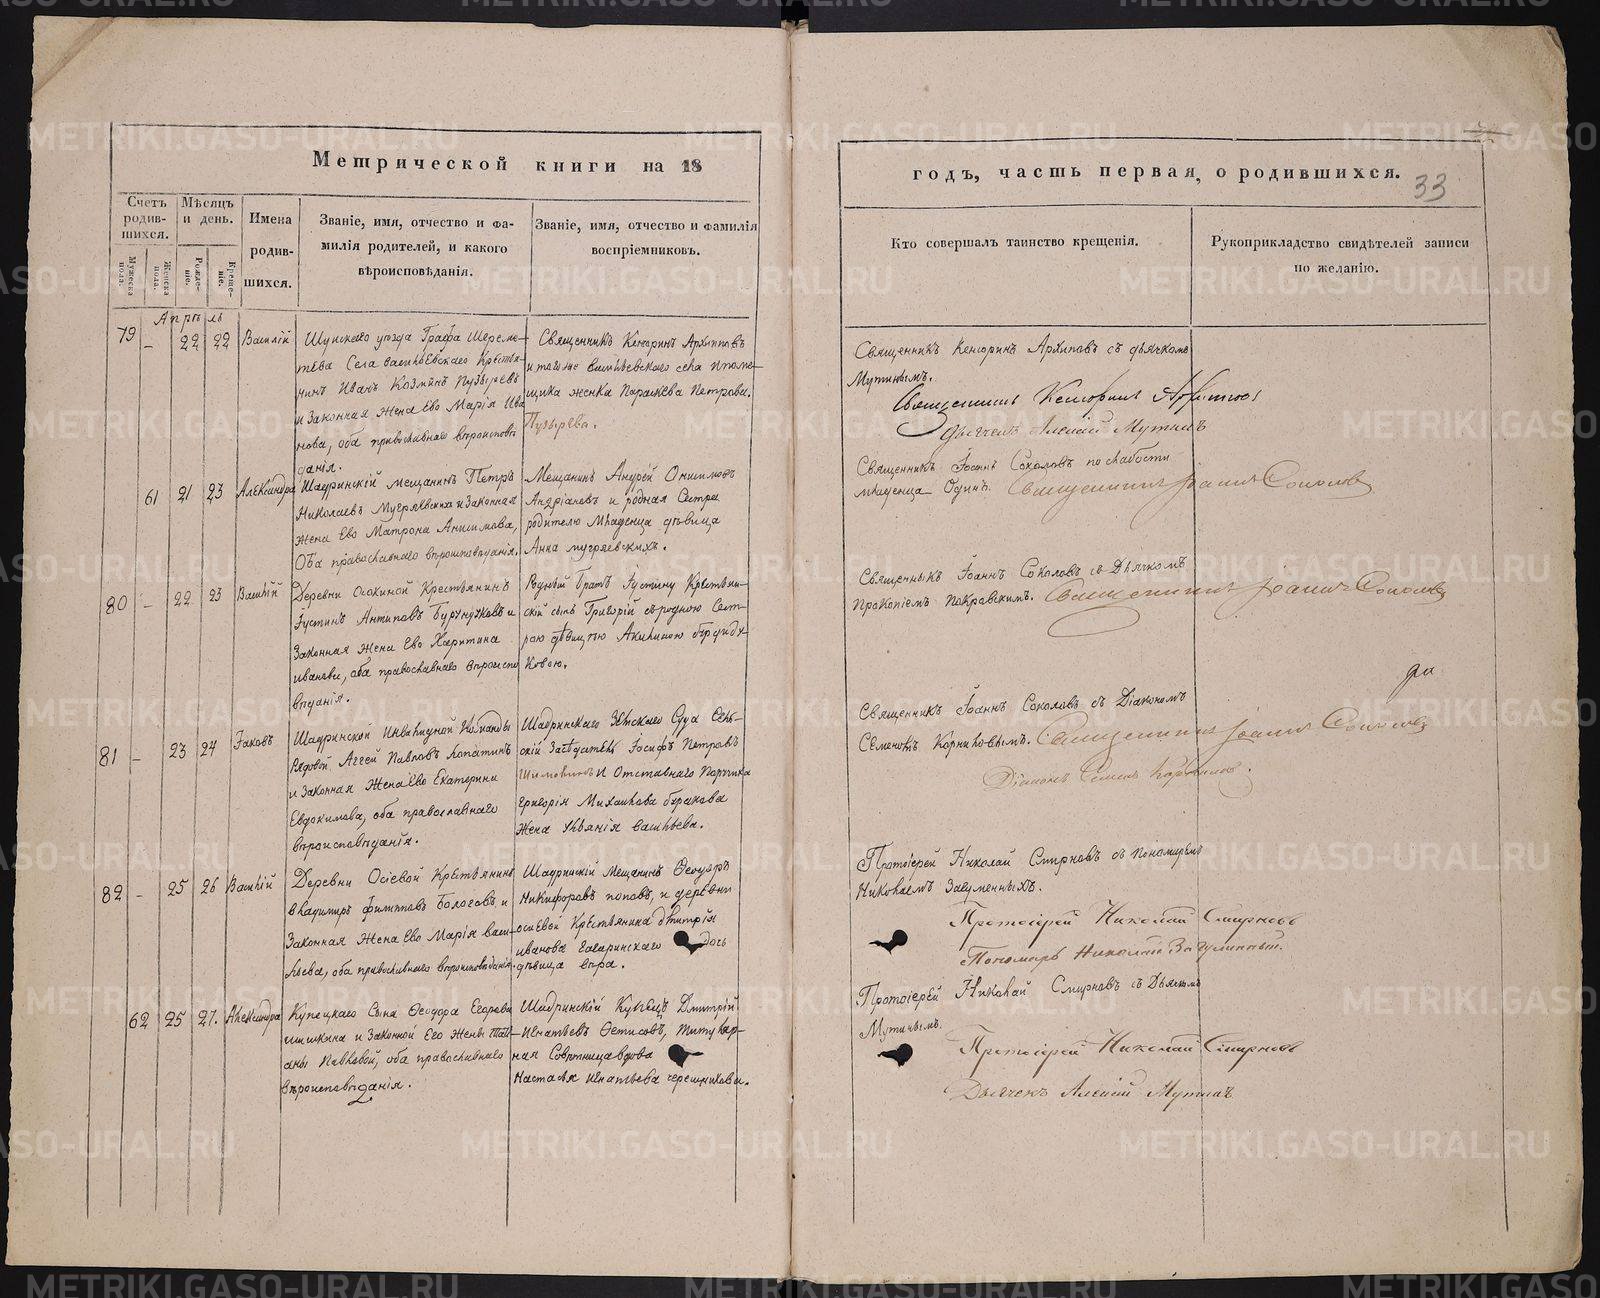 Метрической книги на 18
годъ, часть первая, о родившихся.
33
Счетъ родив-
шихся.
Мужеска пола.
Женска пола.
Мѣсяцъ и день.
Рожде-
ніе.
Креще-
ніе.
Имена
родив-
шихся.
Званіе, имя, отчество и фа-
милія родителей, и какого
вѣроисповѣданія.
Званіе, имя, отчество и фамилія
воспріемниковъ.
Кто совершалъ таинство крещенія.
Рукоприкладство свидѣтелей записи
по желанію.
Апрѣль
79 – 22 22 Василій
Шуйскаго уѣзда Графа Шереме-
тева Села Васильевскаго Крестья-
нинъ Иванъ Козминъ Пузыревъ
и Законная жена Ево Марія Ива
нова, оба православнаго вѣроисповѣ
данія.
Священникъ Кенсоринъ Архиповъ
и тогоже Васильевскаго села
женка Параскева Петрова
Пузырева.
Священникъ Кенсоринъ Архиповъ съ дьячкомъ
Мутинымъ.
Священникъ Кенсоринъ Архиповъ
Дьячекъ Алексій Мутинъ
61 21 23 Александра
Шадринскій мещанинъ Петръ
Николаевъ Мугряевскихъ и Законная
Жена Ево Матрона Анисимова,
Оба православнаго вѣроисповѣданія.
Мещанинъ Андрей Онисимовъ
Андріановъ и родная Сестра
родителю Младенца дѣвица
Анна мугряевскихъ.
Священникъ Іоаннъ Соколовъ по слабости
младенца Одинъ. Священникъ Іоаннъ Соколовъ
80 – 22 23 Василій
Деревни Осокиной Крестьянинъ
Іустинъ Антиповъ Бурундуковъ и
Законная Жена Ево Харитина
иванова, оба православнаго вѣроиспо
вѣданія.
Родный братъ Іустину Крестьян-
скій сынъ Григорій съ родною Сест-
рою дѣвицею Акилиною бурунду-
ковою.
Священникъ Іоаннъ Соколовъ съ Дьячкомъ
Прокопіемъ Покровскимъ. Священникъ Іоаннъ Соколовъ
81 – 23 24 Іаковъ
Шадринской Инвалидной Команды
Рядовой Аггей Павловъ Лопатинъ
и Законная Жена Ево Екатерина
Евдокимова, оба православнаго
вѣроисповѣданія.
Шадринскаго Земскаго Суда Сель-
скій Засѣдатель Іосифъ Петровъ
и Отставнаго Поручика
Григорія Михайлова буракова
Жена Ульянія Васильева.
Священникъ Іоаннъ Соколовъ съ Діакономъ
Семеномъ Корниловымъ. Священникъ Іоаннъ Соколовъ
Діаконъ Семенъ Корниловъ.
82 – 25 26 Василій
Деревни Осіевой Крестьянинъ
Владимиръ Филиповъ Бологовъ и
Законная Жена Ево Марія Васи-
льева, оба православнаго вѣроисповѣданія.
Шадринскій Мещанинъ Ѳеодоръ
Никифоровъ поповъ, и деревни
осіевой Крестьянина дмитрія
иванова Гагаринскаго дочь
дѣвица вѣра.
Протоіерей Николай Смирновъ съ Пономаремъ
Николаемъ Загуменныхъ.
Протоіерей Николай Смирновъ
Пономарь Николай Загуменныхъ.
62 25 27. Александра
Купецкаго Сына Ѳеодора Егорова
шишкина и Законной Его Жены Тать-
яны Павловой, оба православнаго
Вѣроисповѣданія.
Шадринскій Купецъ Дмитрій
Игнатьевъ Ѳетисовъ, Титуляр-
ная Совѣтница вдова
Настасья Игнатьева черешникова.
Протоіерей Николай Смирновъ съ Дьячкомъ
Мутинымъ.
Протоіерей Николай Смирновъ
Дьячекъ Алексій Мутинъ
METRIKI.GASO-URAL.RU